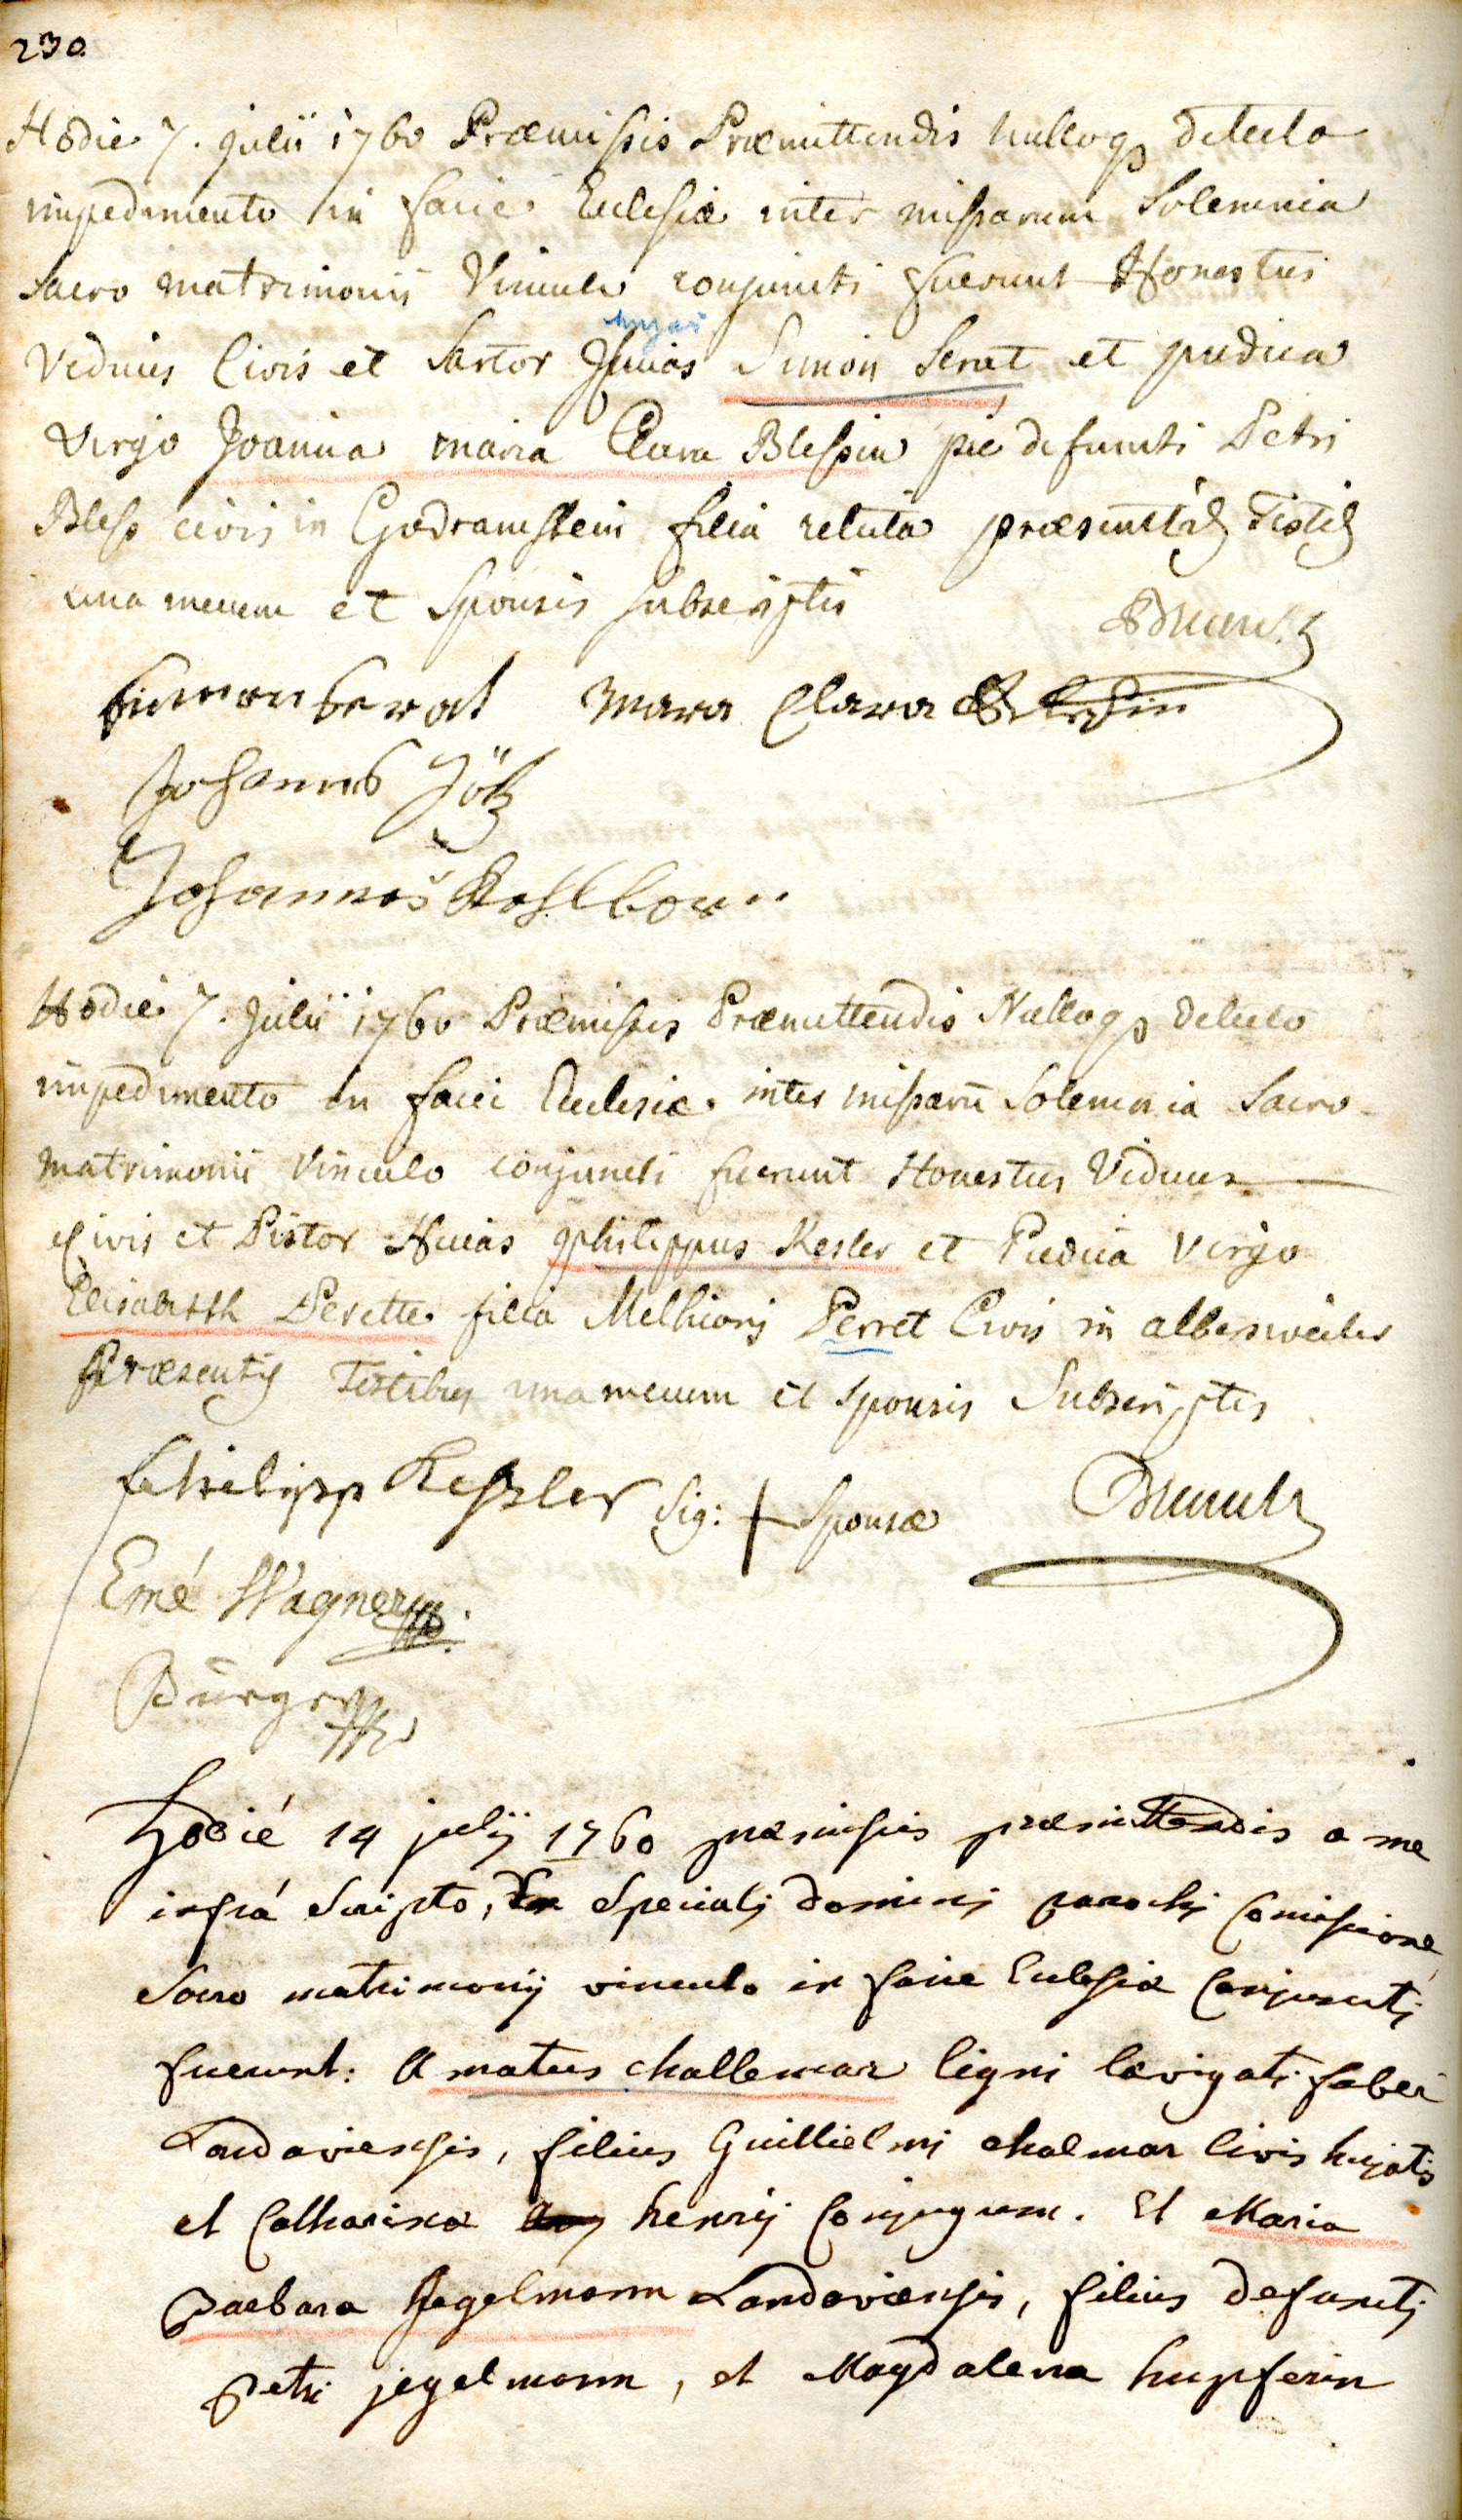 230.
Hodie 7. julii 1760 Præmissis Præmittendis nulloqз detecto
impedimento in facie Ecclesiæ inter missarum Solemnia
Sacro matrimonii Vinculo conjuncti fuerunt Honestus
hujas
Viduus Civis et Sartor Huias Simon Serat et pudica
Virgo Joanna maria Clara Blessin pie defuncti Petri
Bless civis in Godramstein filia relicta præsentib Testib
una mecum et Sponsis subscriptis
Simon Serat Maria Clara Blessin
Johannes Götz
Johannes Kohlborn
Hodie 7. Julii 1760 Præmissis Præmittendis Nulloqз detecto
impedimento in facie Ecclesiæ inter missarū Solemnia Sacro
matrimonii Vinculo conjuncti fuerunt Honestus Viduus
Civis et Pistor Huias Philippus Kesler et Pudica Virgo
Elisabetth Perette filia Melhioris Perret Civis in albersweiler
Præsentib Testibus una mecum et sponsis Subscriptis
Philipp Keszler Sig: + Sponsæ
Emé Wagner
Bürger
Hodié 14 julij 1760 præmissis præmittendis a me
infrá Scripto, de Speciali domini parochi Comissione
Sacro matrimonij vinculo in facie Eclesiæ Conjuncti
fuerunt: Amatus challemar ligni lævigati faber
Landaviensis, filius Guillielmi chalmar Civis hujatis
et Catharina henrij Conjugum. Et Maria
Barbara Jegelmann Landaviensis, filius defuncti
petri jegelmann, et Magdalena hupferin